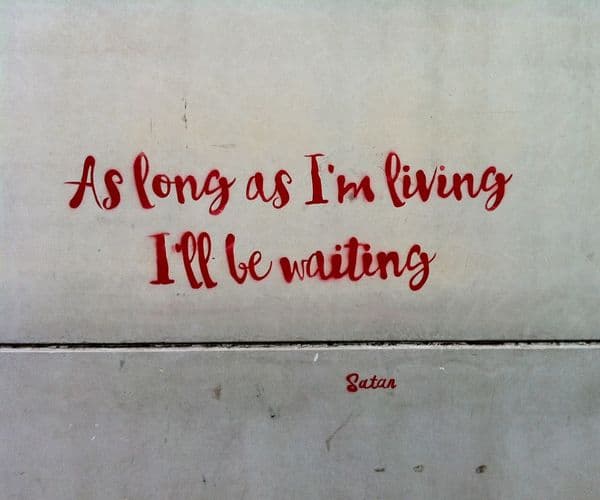 As long as I'm living
I'll be waiting
Satan